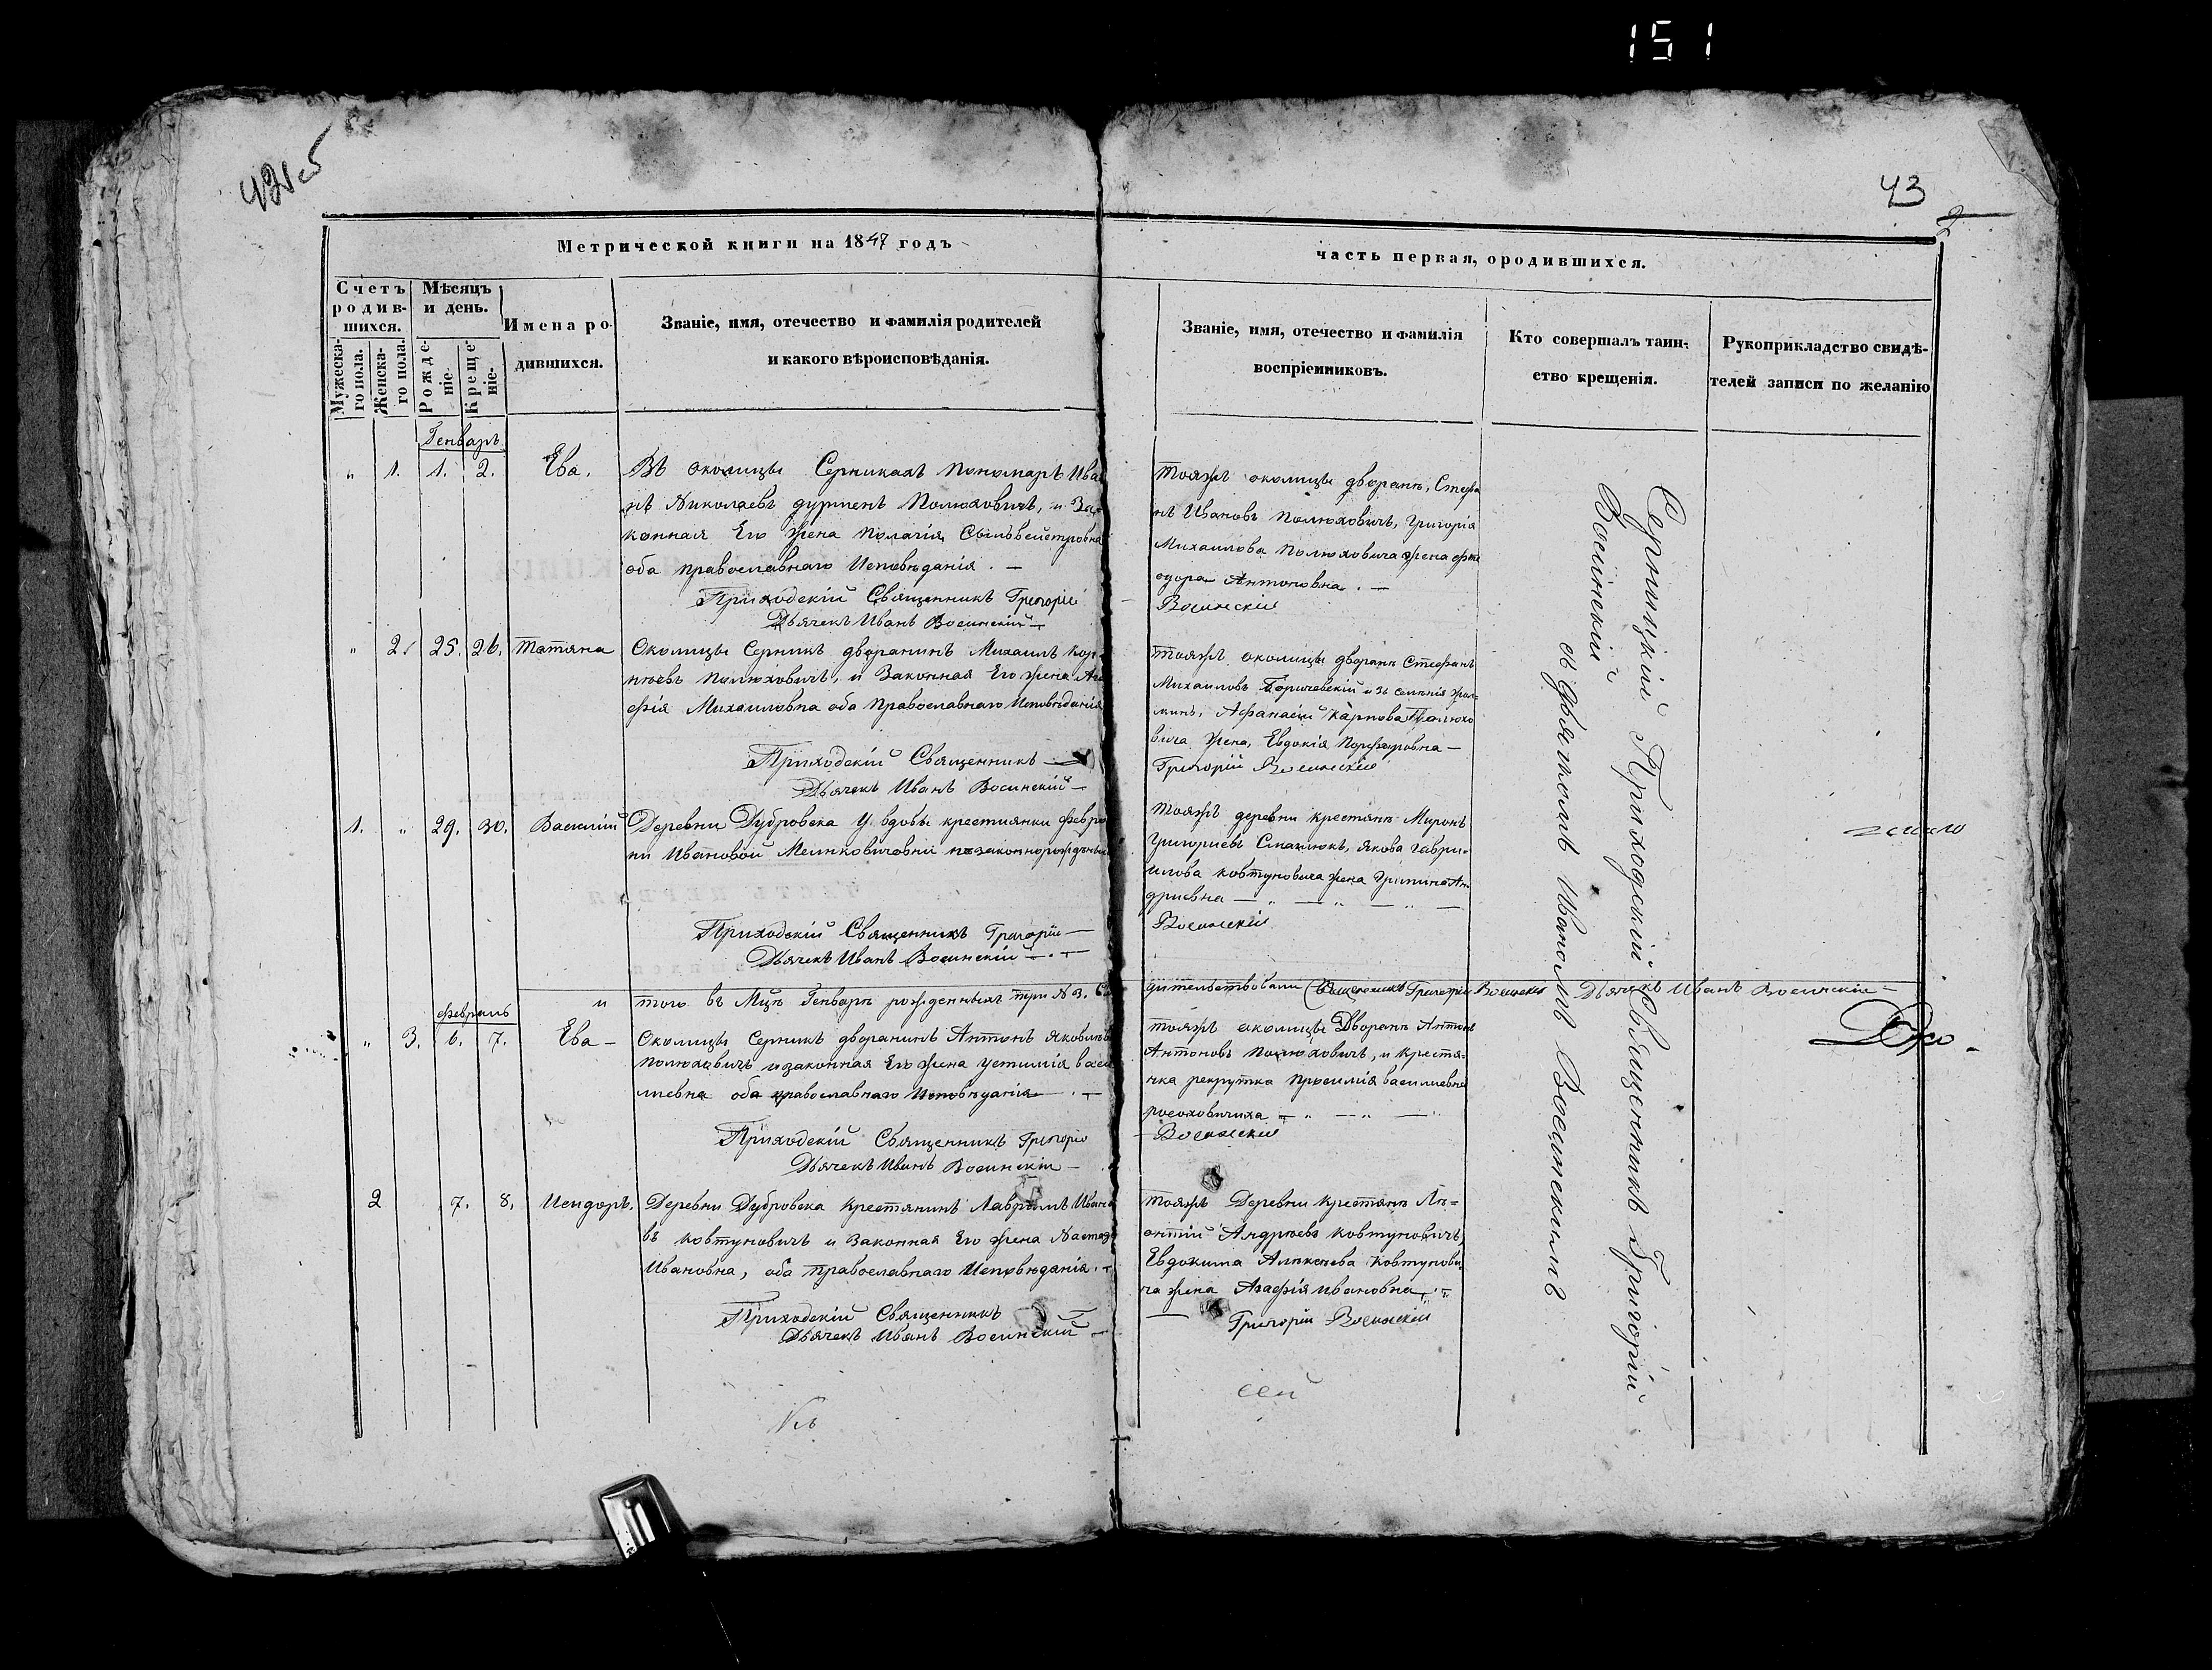 151
43
2
Метрической книги на 1847 годъ
часть первая, ородившихся.
Счетъ родив-шихся.
Мѣсяцъ и день.
Мужеска-го пола.
Женска-го пола.
Рожде-ніе.
Креще-ніе.
Имена ро-
дившихся.
Званіе, имя, отечество и фамилія родителей
и какого вѣроисповѣданія.
Званіе, имя, отечество и фамилія
воспріемниковъ.
Кто совершалъ таин-
ство крещенія.
Рукоприкладство свидѣ-
телей записи по желанію
Генварь
" 1. 1. 2. Ева. Въ околицы Серникахъ пономарь Ива
нъ Николаевъ Полюховичъ, и За-
конная Его жена Сыльвейстровна
оба православнаго Исповѣданія. —
Приходскій Священникъ Григорій
Дьячекъ Иванъ Восинскій —
Тояжъ околицы дворянъ, Стефа
нъ Ивановъ Полюховичъ, Григорія
Михаилова Полюховича жена Фе
одора Антоновна. —
Восинскій
" 2. 25. 26. Татяна Околицы Серникъ дворанинъ Михаилъ Кор-
нѣевъ Полюховичъ, и Законная Его жена Ага
фія Михаиловна оба Православнаго Исповѣданія
Приходскій Священникъ —
Дьячекъ Иванъ Восинскій —
Тояжъ околицы дворянъ Стефанъ
Михаиловъ
Афанасій Карпова Полюхо
вича жена, Евдокія —
Григорій Восинскій
1. " 29. 30. Василій Деревни Дубровска У вдовы крестиянки Февро
ни Ивановой Мелнковичовни незаконнорожденный
Приходскій Священникъ Григорій —
Дьячекъ Иванъ Восинскій —
Тояжъ деревни крестянъ Миронъ
Григориевъ Якова Гаври-
илова Ковтуновича жена Ан
дриевна —
Восинскій
и того въ Мцѣ Генварѣ рожденныхъ три №3. Сви
дительствовали Священникъ Григорій Восинскій Дьячекъ Иванъ Восинскій
Февраль
" 3. 6. 7. Ева — Околицы Серникъ дворанинъ Антонъ Яковлевъ
Полюховичъ изаконная Его жена Устимія Васи
лиевна оба православнаго Исповѣданія —
Приходскій Священникъ Григорій
Дьячекъ Иванъ Восинскій —
Тояжъ околицы Дворянъ Антонъ
Антоновъ Полюховичъ, и крестя-
нка рекрутка Василиевна
Восинскій
2 7. 8. Исидоръ. Деревни Дубровска крестянинъ Иванo
въ Ковтуновичъ и Законная Его жена Настазія
Ивановна, оба Православнаго Исповѣданія.
Приходскій Священникъ
Дьячекъ Иванъ Восинскій —
Тояжъ Деревни крестянъ Ле-
онтій Андрѣевъ Ковтуновичъ,
Евдокима Ковтунови
ча жена Агафія Ивановна
Григорій Восинскій
Серницкій Приходскій Священникъ Григорій
Восинскій
съ Дьячкомъ Иваномъ Восинскимъ
сей